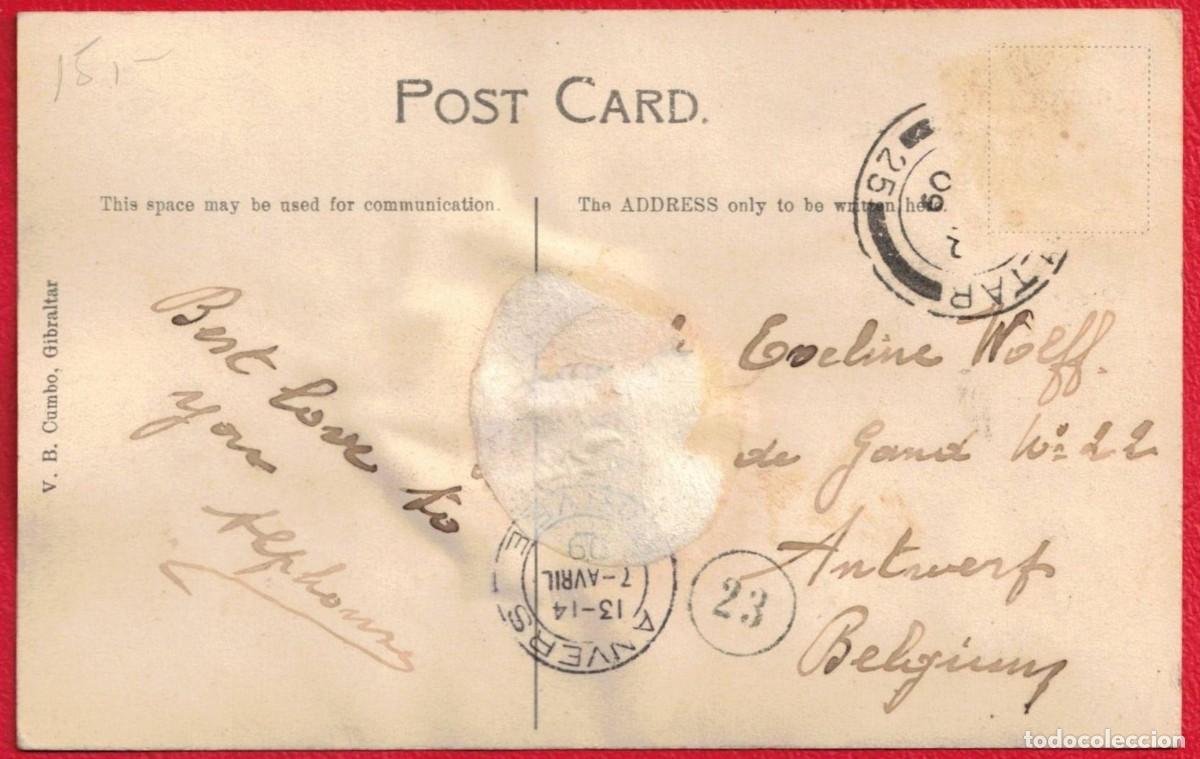 15,-
POST CARD.
This space may be used for communication.
The ADDRESS only to be written here.
V. B. Cumbo, Gibraltar
Best love to
you
Alphonse
Eveline Wolff.
de Gand Nº 22
Antwerf
Belgium
25
09
TAR
ANVERS
13-14
7-AVRIL
09
23
todocoleccion.net